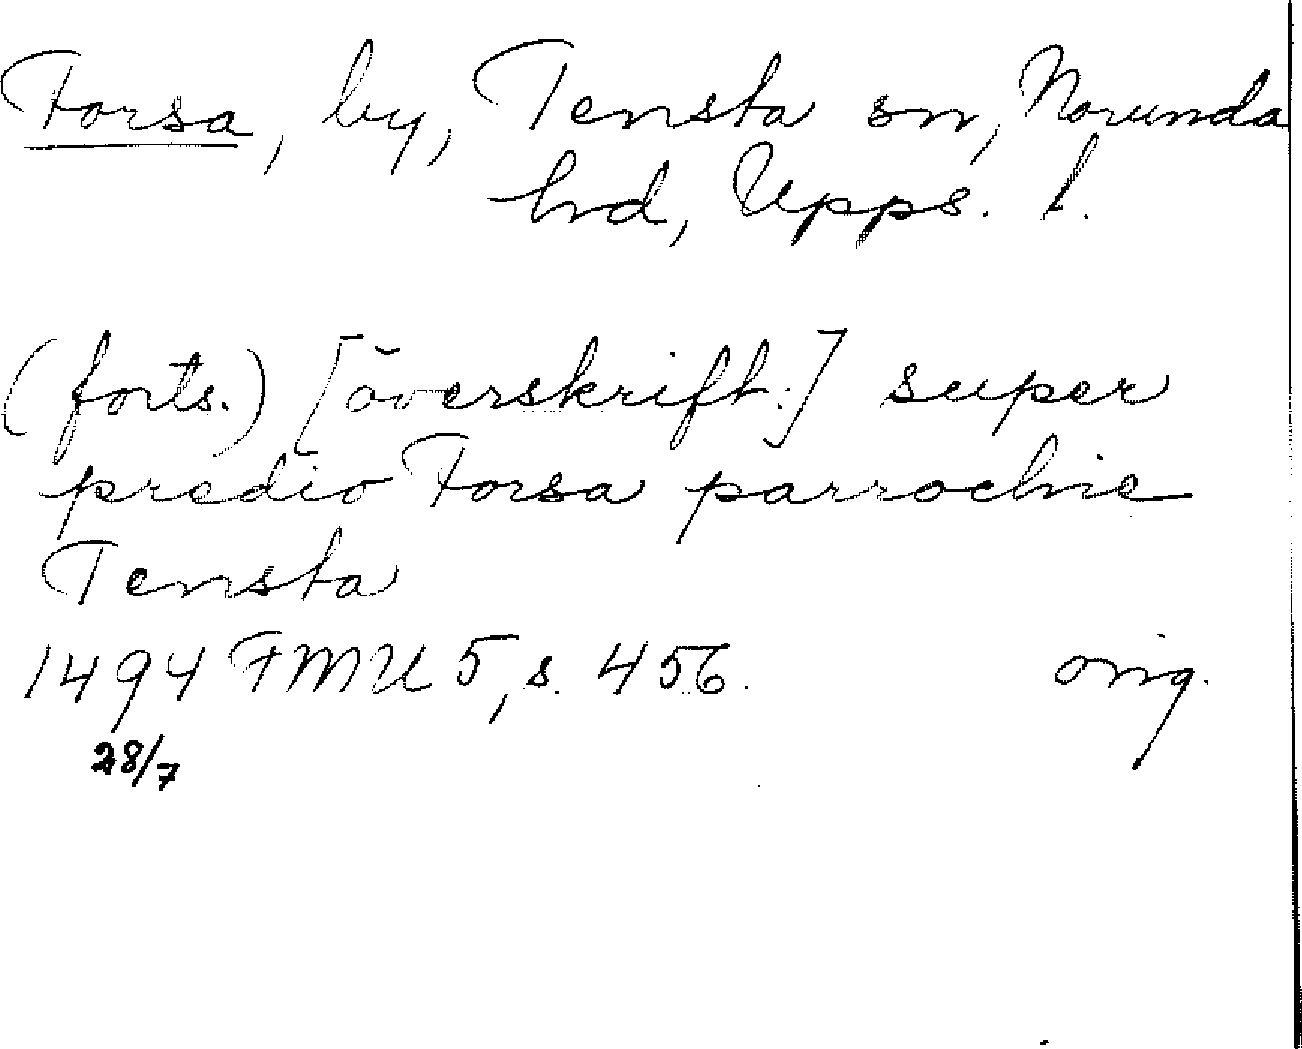 Forsa, by, Tensta sn, Norunda
hd, Upps. l.
(forts.) [överskrift:] super
predio Forsa parrochie
Tensta
1494 FMU 5, s. 456. orig.
28/7